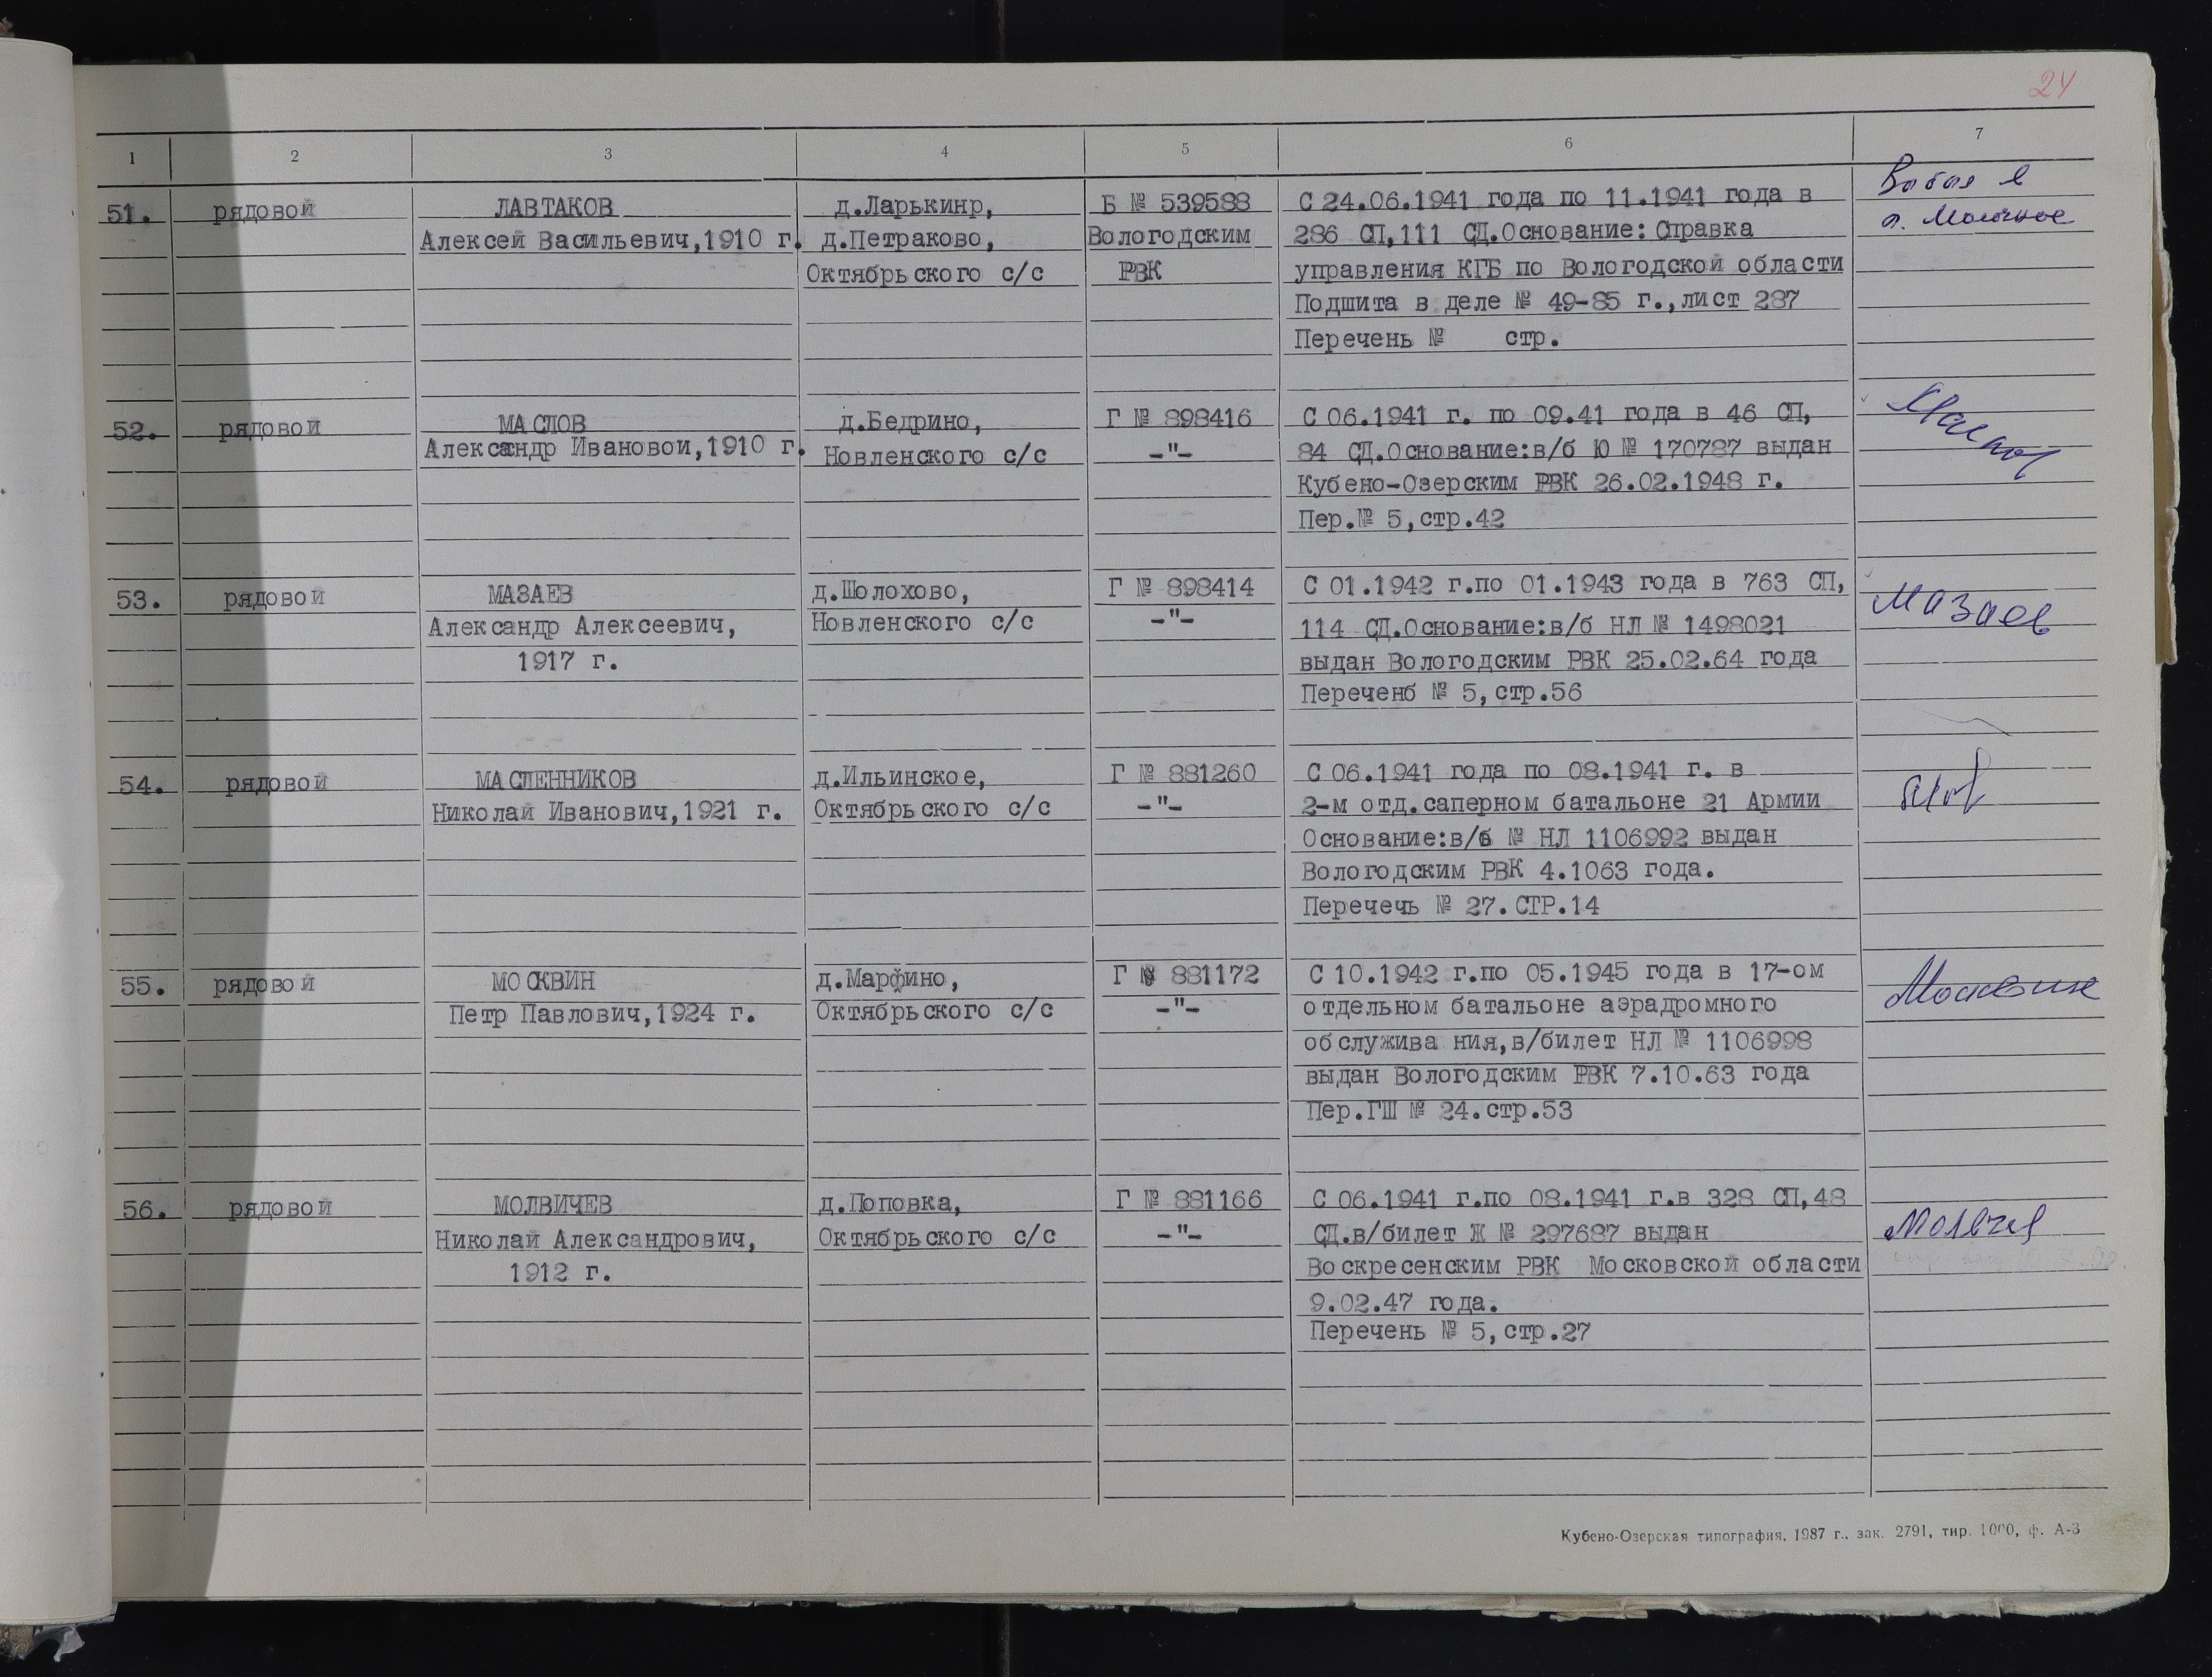 24
1 2 3 4 5 6 7
51. рядовой ЛАВТАКОВ д.Ларькинр, Б № 539588 С 24.06.1941 года по 11.1941 года в Выбыл в
Алексей Васильевич,1910 г. д.Петраково, Вологодским 286 СП,111 СД.Основание: Справка п. Молочное
Октябрьского с/с РВК управления КГБ по Вологодской области
Подшита в деле № 49-85 г.,лист 287
Перечень № стр.
52. рядовой МАСЛОВ д.Бедрино, Г № 898416 С 06.1941 г. по 09.41 года в 46 СП,
Александр Ивановои,1910 г. Новленского с/с -"- 84 СД.Основание:в/б Ю № 170787 выдан
Кубено-Озерским РВК 26.02.1948 г.
Пер.№ 5,стр.42
53. рядовой МАЗАЕВ д.Шолохово, Г № 898414 С 01.1942 г.по 01.1943 года в 763 СП, Мазаев
Александр Алексеевич, Новленского с/с -"- 114 СД.Основание:в/б НЛ № 1498021
1917 г. выдан Вологодским РВК 25.02.64 года
Переченб № 5,стр.56
54. рядовой МАСЛЕННИКОВ д.Ильинское, Г № 881260 С 06.1941 года по 08.1941 г. в
Николай Иванович,1921 г. Октябрьского с/с -"- 2-м отд.саперном батальоне 21 Армии
Основание:в/б № НЛ 1106992 выдан
Вологодским РВК 4.1063 года.
Перечечь № 27.СТР.14
55. рядовой МОСКВИН д.Марфино, Г № 881172 С 10.1942 г.по 05.1945 года в 17-ом Москвин
Петр Павлович,1924 г. Октябрьского с/с -"- отдельном батальоне аэрадромного
обслужива ния,в/билет НЛ № 1106998
выдан Вологодским РВК 7.10.63 года
Пер.ГШ № 24.стр.53
56. рядовой МОЛВИЧЕВ д.Поповка, Г № 881166 С 06.1941 г.по 08.1941 г.в 328 СП,48
Николай Александрович, Октябрьского с/с -"- СД.в/билет Ж № 297687 выдан
1912 г. Воскресенским РВК Московской области
9.02.47 года.
Перечень № 5,стр.27
Кубено-Озерская типография, 1987 г., зак. 2791, тир. 1000, ф. А-3